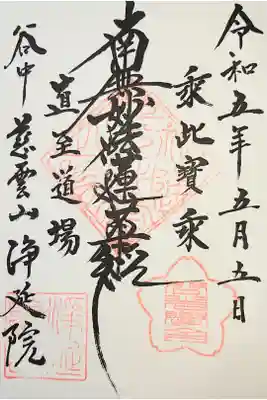 令和五年五月五日
乗此寳乗
南無妙法蓮華経
直至道場
谷中 慈雲山 浄延院